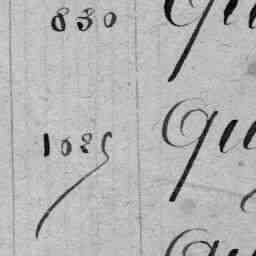 830 Qu
1025 Qu
Qu